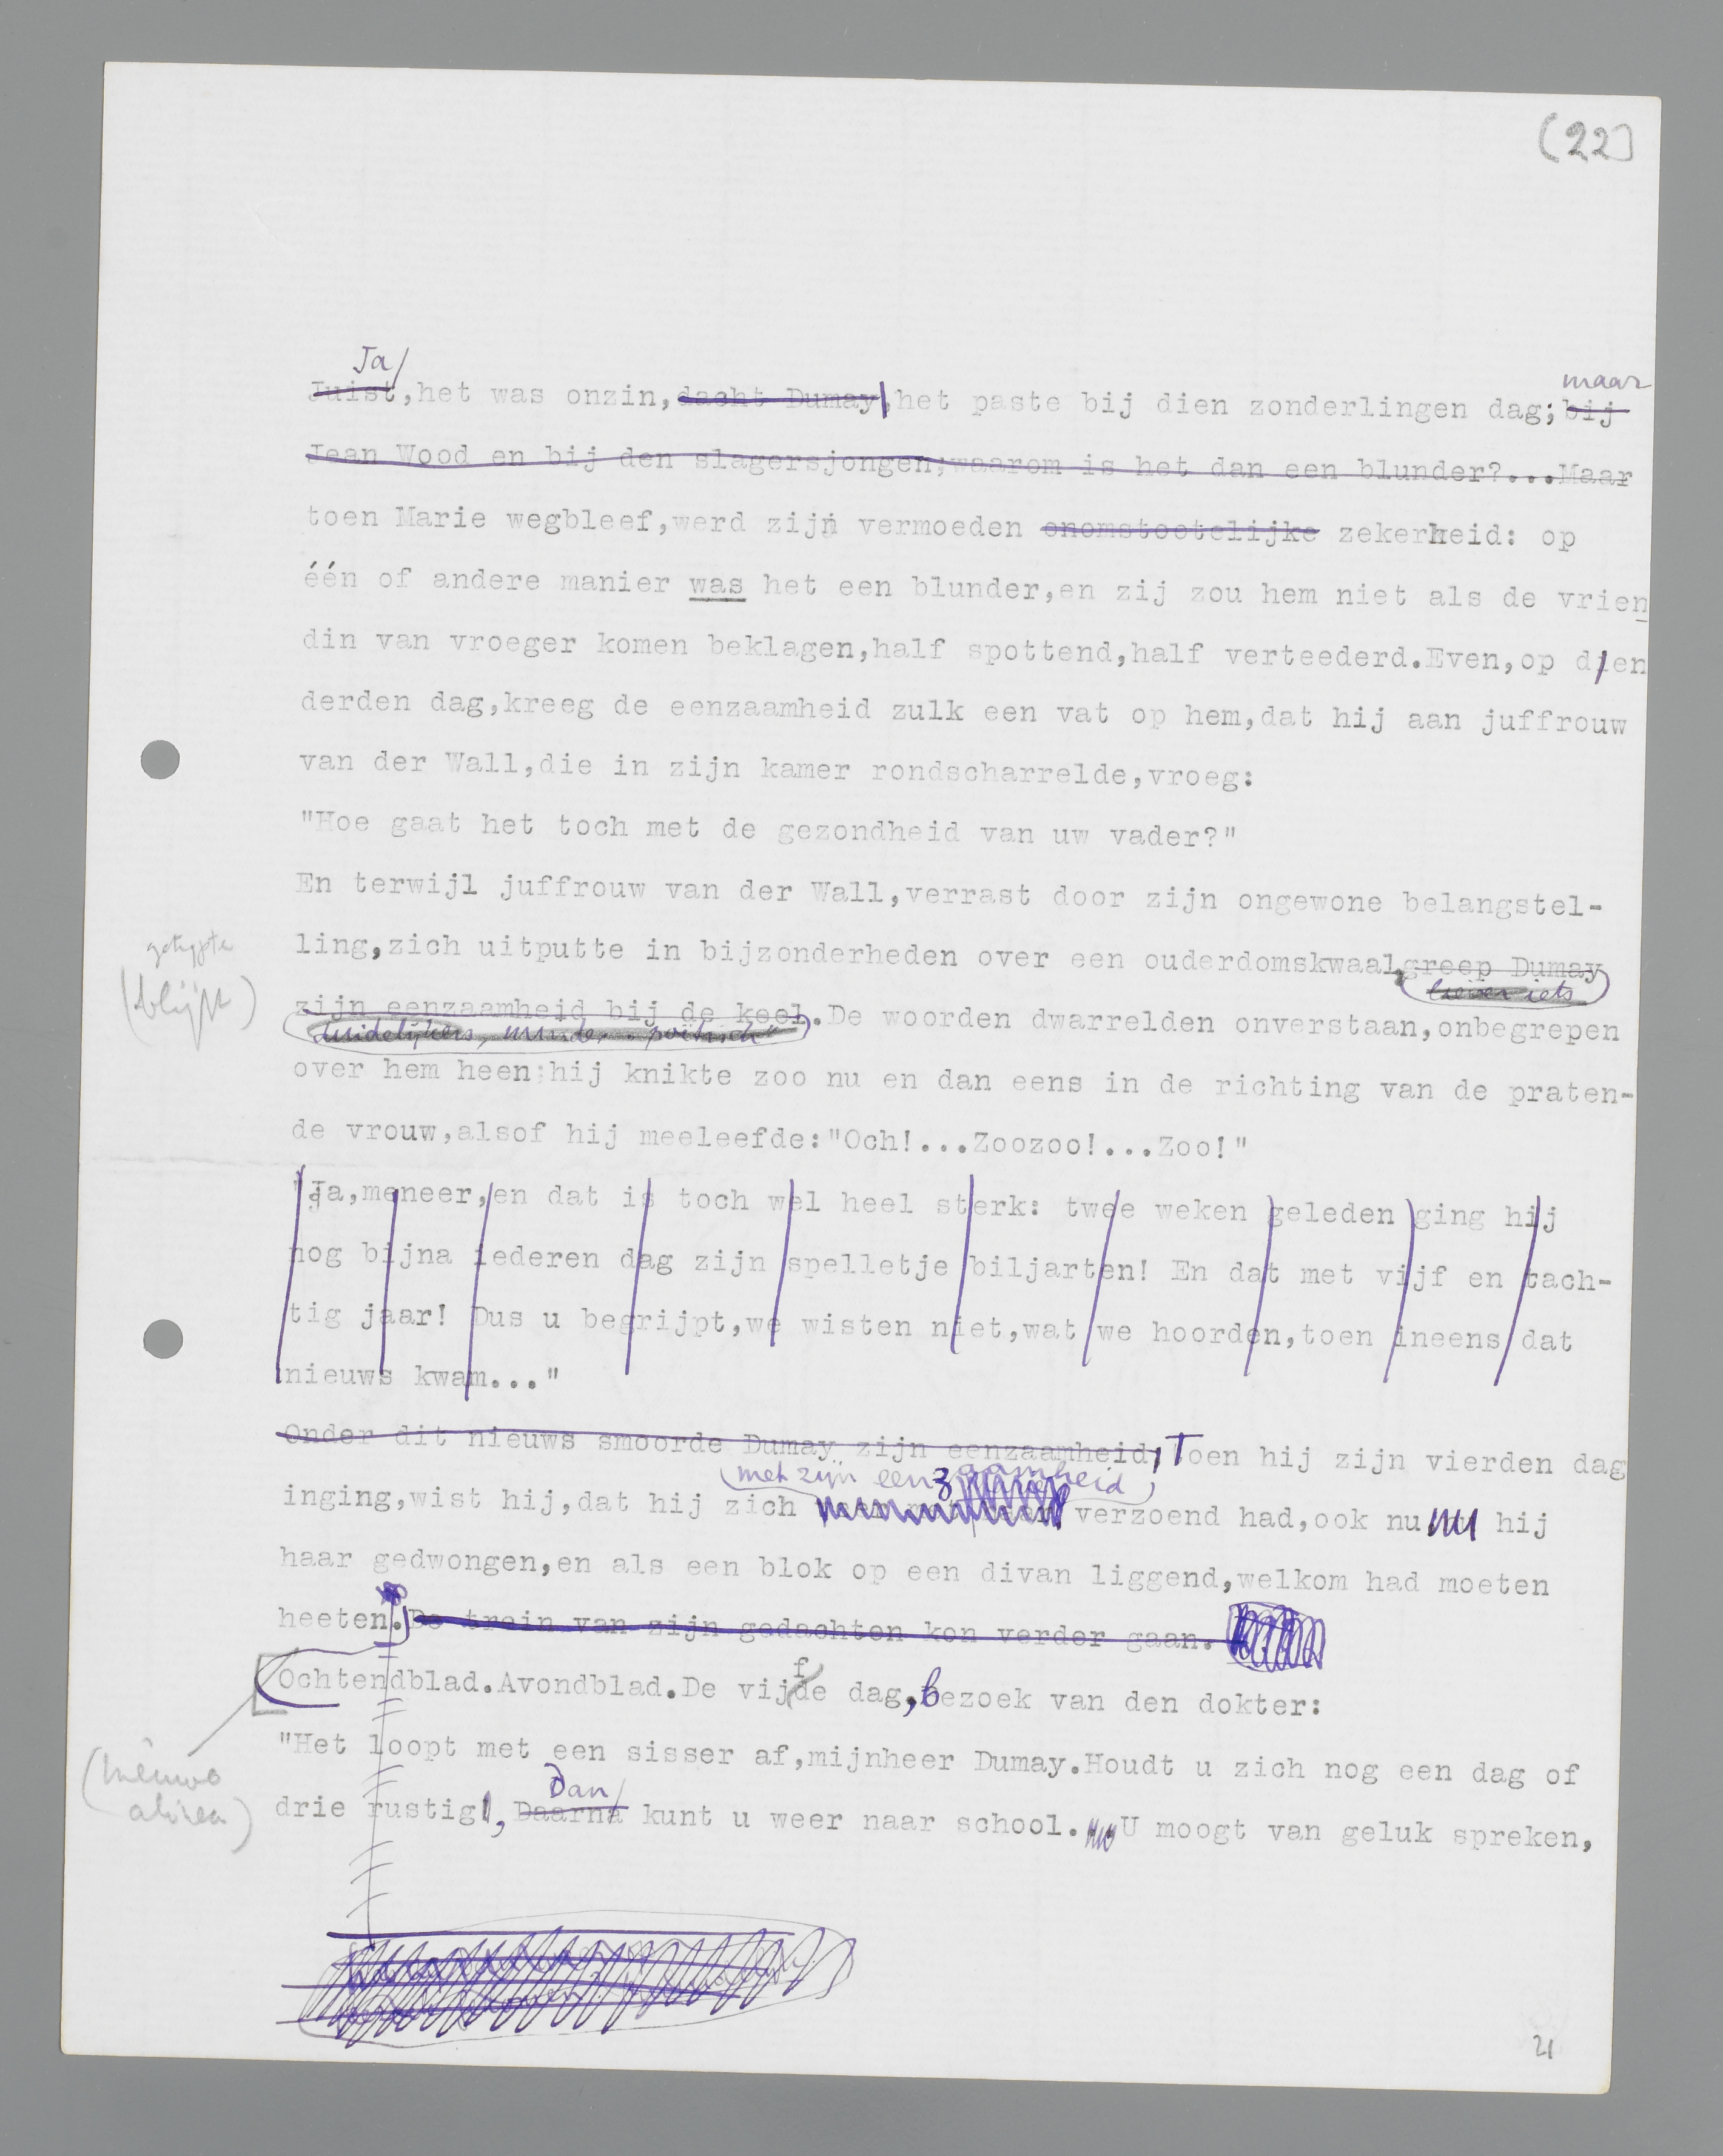 (22)
Ja
maar
Juist,het was onzin,dacht Dumay,het paste bij dien zonderlingen dag; bij
Jean Wood en bij den slagersjongen;waarom is het dan een blunder?...Maar
toen Marie wegbleef,werd zijn vermoeden onomstootelijke zekerheid: op
één of andere manier was het een blunder,en zij zou hem niet als de vrien
din van vroeger komen beklagen,half spottend,half verteederd.Even,op dien
derden dag,kreeg de eenzaamheid zulk een vat op hem,dat hij aan juffrouw
van der Wall,die in zijn kamer rondscharrelde,vroeg:
"Hoe gaat het toch met de gezondheid van uw vader?"
En terwijl juffrouw van der Wall,verrast door zijn ongewone belangstel-
getypte
(blijft)
ling,zich uitputte in bijzonderheden over een ouderdomskwaal,greep Dumay
liever iets
zijn eenzaamheid bij de keel.De woorden dwarrelden onverstaan,onbegrepen
duidelijkers, minder "poëtisch"
over hem heen;hij knikte zoo nu en dan eens in de richting van de praten-
de vrouw,alsof hij meeleefde:"Och!...Zoozoo!...Zoo!"
"Ja,meneer,en dat is toch wel heel sterk: twee weken geleden ging hij
nog bijna iederen dag zijn spelletje biljarten! En dat met vijf en tach-
tig jaar! Dus u begrijpt,we wisten niet,wat we hoorden,toen ineens dat
nieuws kwam..."
Onder dit nieuws smoorde Dumay zijn eenzaamheid; Toen hij zijn vierden dag
(met zijn eenzaamheid)
inging,wist hij,dat hij zich verzoend had,ook nu hij
haar gedwongen,en als een blok op een divan liggend,welkom had moeten
heeten. De trein van zijn gedachten kon verder gaan.
Ochtendblad.Avondblad.De vijfde dag, bezoek van den dokter:
"Het loopt met een sisser af,mijnheer Dumay.Houdt u zich nog een dag of
(nieuwe
alinea)
Dan
drie rustig, Daarna kunt u weer naar school. U moogt van geluk spreken,
21